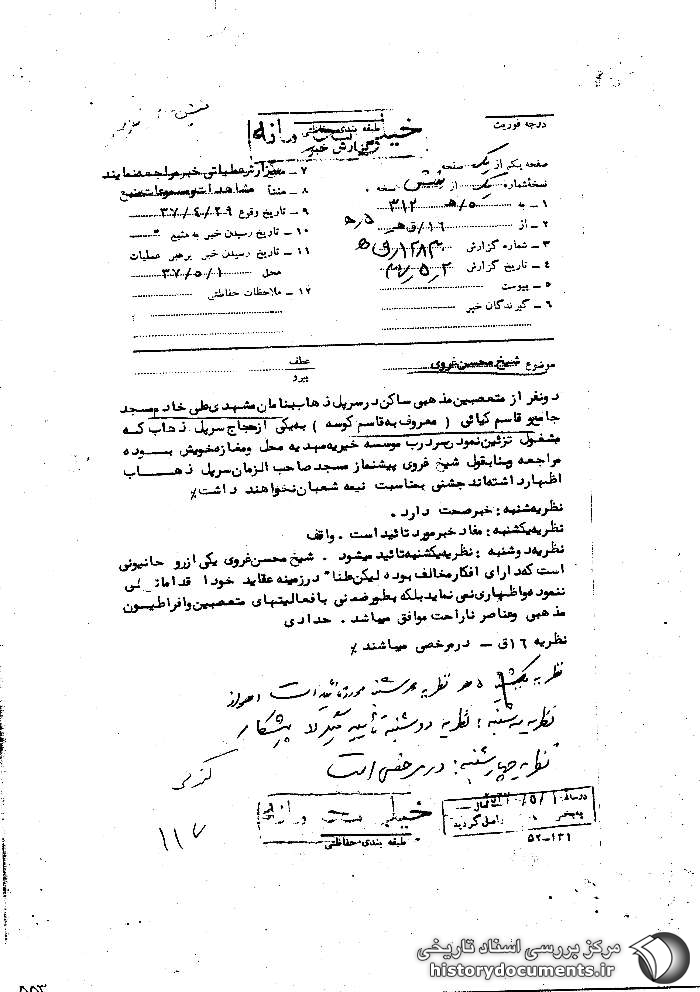 خیلی محرمانه
طبقه بندی حفاظتی
گزارش خبر
درجه فوریت
صفحه یکم از یک صفحه
نسخه شماره یک از شش نسخه .
۱ – به ۵/هـ ۳۱۲
۲ – از ۱۶/ق هـ
۳ – شماره گزارش
۴ – تاریخ گزارش
۵ – پیوست
۶ – گیرندگان خبر
۷ – بگزارش عملیاتی خبر مراجعه نمایند
۸ – منشأ مشاهدات و مسموعات منبع
۹ – تاریخ وقوع ۳۷/۴/۲۹
۱۰ – تاریخ رسیدن خبر به منبع
۱۱ – تاریخ رسیدن خبر برهبر عملیات
محل ۳۷/۵/۱
۱۲ – ملاحظات حفاظتی
موضوع شیخ محسن غروی
عطف
پیرو
دونفر از متعصبین مذهبی ساکن در سرپل ذهاب بنامان مشهدی علی خادم مسجد
جامع و قاسم کیائی ( معروف به قاسم کوسه ) به یکی از حجاج سرپل ذهاب که
مشغول تزئین نمودن سردرب موسسه خیریه مهدیه محل ومغازه خویش بوده
مراجعه وبنا بقول شیخ غروی پیشنماز مسجد صاحب الزمان سرپل ذهاب
اظهار داشته اند جشنی بمناسبت نیمه شعبان نخواهند داشت٪
نظریه شنبه : خبر صحت دارد .
نظریه یکشنبه : مفاد خبر مورد تائید است . واقف
نظریه دوشنبه : نظریه یکشنبه تائید میشود . شیخ محسن غروی یکی از روحانیونی
است که دارای افکار مخالف بوده لیکن علنا" در زمینه عقاید خود اقداماتی
ننموده واظهاری نمی نماید بلکه بطور ضمنی با فعالیتهای متعصبین وافراطیون
مذهبی وعناصر ناراحت موافق میباشد . حدادی
نظریه ۱۶ ق – در مرخصی میباشند ٪
نظریه یکشنبه ۵ هـ نظریه سه شنبه مورد تائید است
نظریه سه شنبه : نظریه دوشنبه تأیید میگردد پیشکار
نظریه چهارشنبه : در مرخصی است
خیلی محرمانه
طبقه بندی حفاظتی
واصل گردید
۵۲–۱۳۱
مرکز بررسی اسناد تاریخی
historydocuments.ir